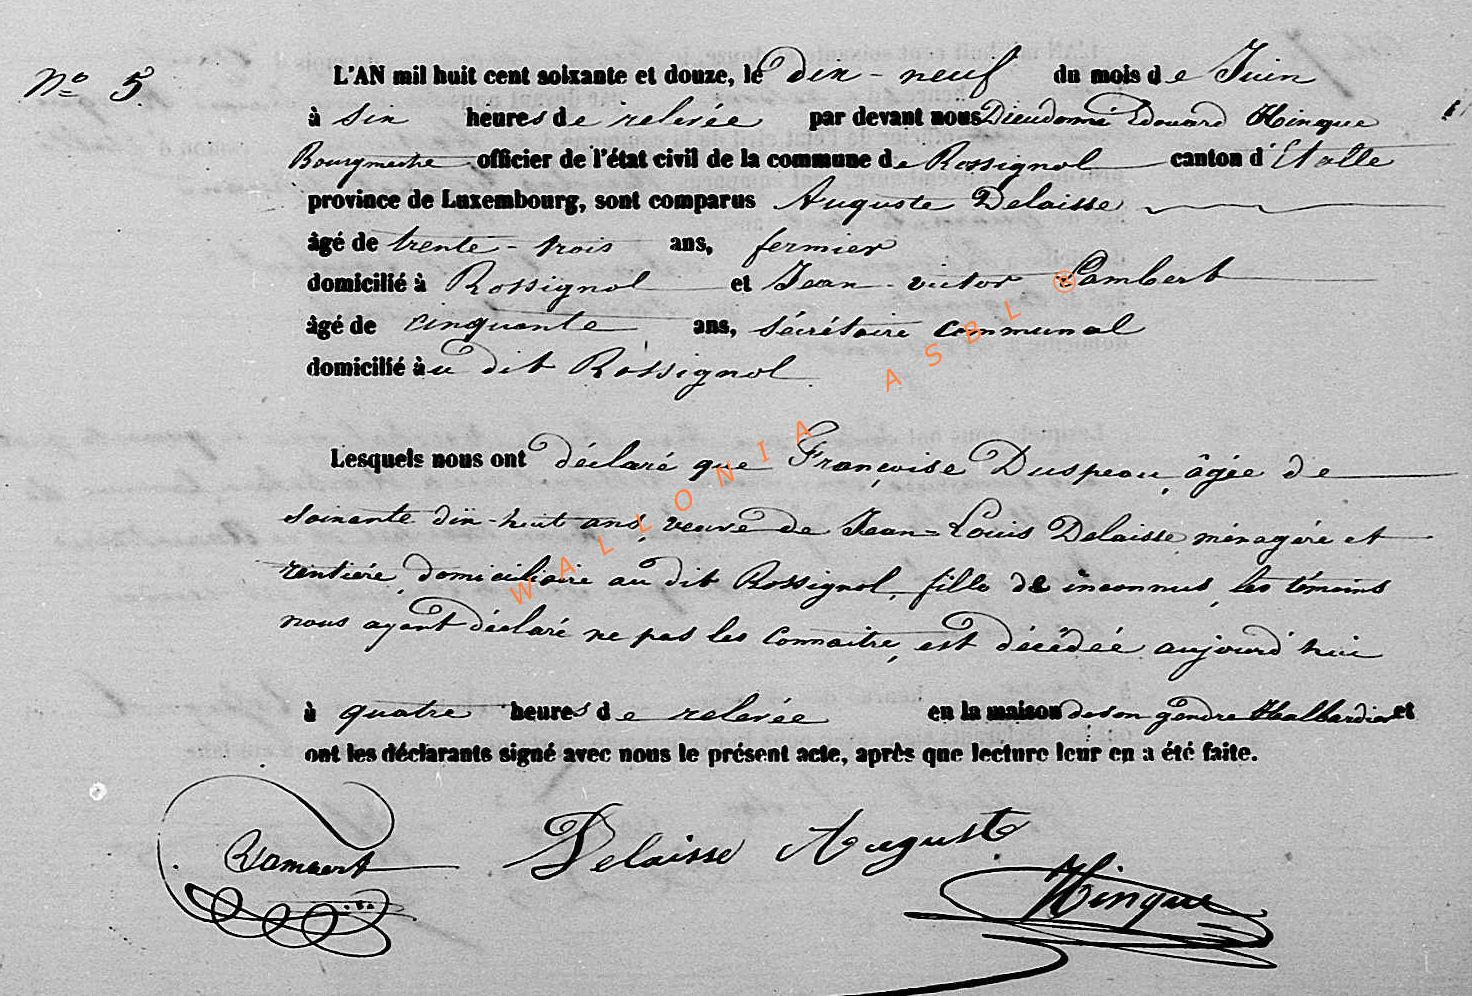 N° 5.
L'AN mil huit cent soixante et douze, le dix-neuf du mois de Juin
à six heures de relevée par devant nous Dieudonné Edouard Hinque
Bourgmestre officier de l'état civil de la commune de Rossignol canton d'Etalle
province de Luxembourg, sont comparus Auguste Delaisse
âgé de trente-trois ans, fermier
domicilié à Rossignol et Jean-victor Lambert
âgé de cinquante ans, sécrétaire communal
domicilié àu dit Rossignol
Lesquels nous ont déclaré que Françoise Duspeau, âgée de
soixante dix-huit ans, veuve de Jean-Louis Delaisse, ménagère et
rentière, domiciliaire au dit Rossignol, fille de inconnus, les témoins
nous ayant déclaré ne pas les connaitre, est décédée aujourd'hui
à quatre heures de relevée en la maison de son gendre Halbardier et
ont les déclarants signé avec nous le présent acte, après que lecture leur en a été faite.
Lambert Delaisse August
Hinque
WALLONIA ASBL ®